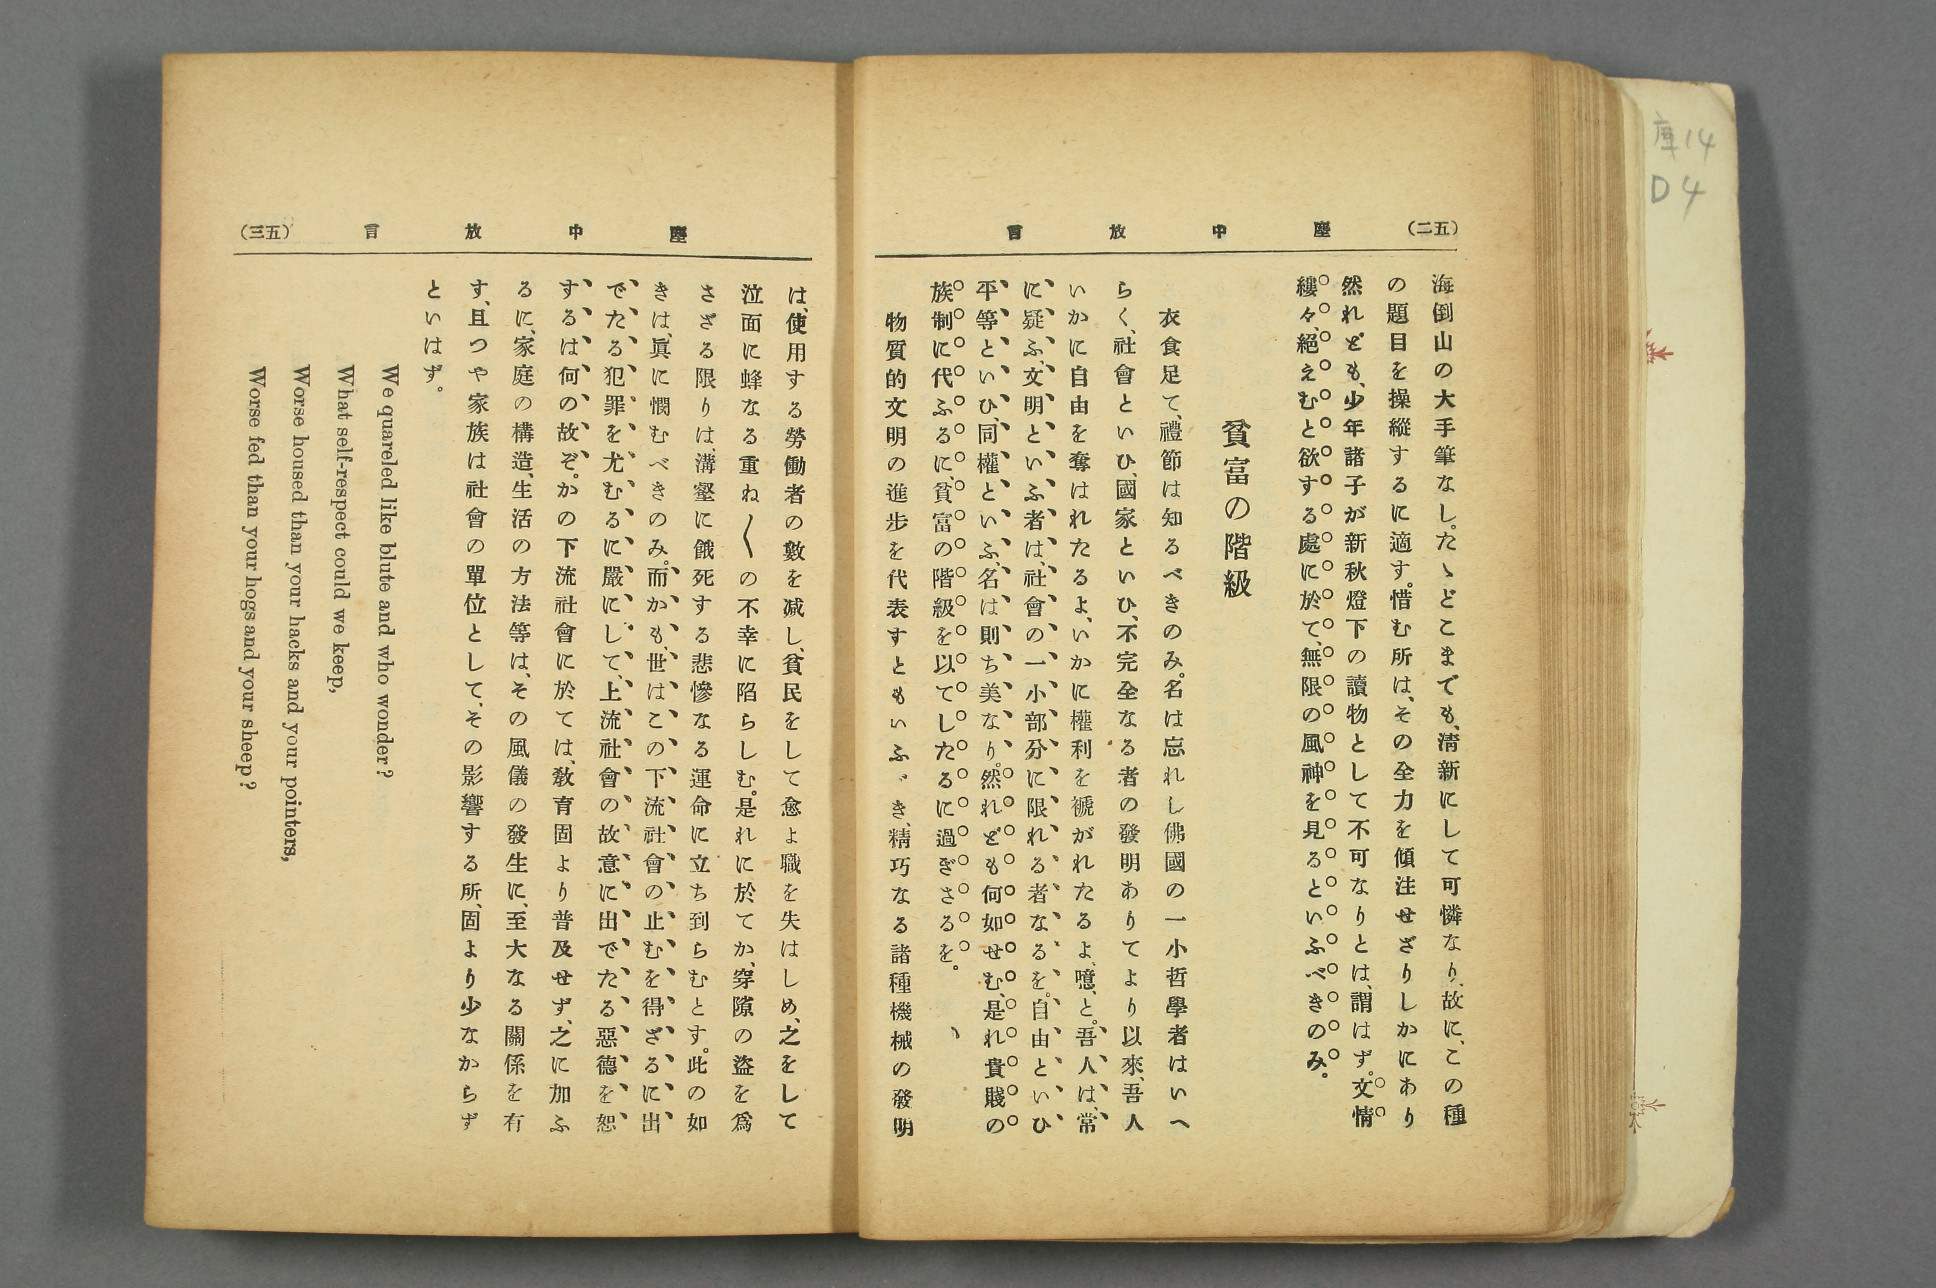 (五二)
塵中放言
海倒山の大手筆なし。たゝどこまでも、淸新にして可憐なり、故に、この種
の題目を操縱するに適す。惜む所は、その全力を傾注せざりしかにあり
然れども、少年諸子が新秋燈下の讀物として不可なりとは、謂はず。文情
縷々、絕えむと欲する處に於て、無限の風神を見るといふべきのみ。
貧富の階級
衣食足て、禮節は知るべきのみ。名は忘れし佛國の一小哲學者はいへ
らく、社會といひ、國家といひ、不完全なる者の發明ありてより以來、吾人
いかに自由を奪はれたるよ、いかに權利を褫がれたるよ、噫、と。吾人は、常
に疑ふ、文明といふ者は、社會の一小部分に限れる者なるを。自由といひ
平等といひ、同權といふ、名は則ち美なり。然れども何如せむ、是れ貴賤の
族制に代ふるに、貧富の階級を以てしたるに過ぎざるを。
物質的文明の進步を代表すともいふべき、精巧なる諸種機械の發明
(五三)
塵中放言
は、使用する勞働者の數を減し、貧民をして愈よ職を失はしめ、之をして
泣面に蜂なる重ね〱の不幸に陷らしむ。是れに於てか、穿隙の盜を爲
さざる限りは、溝壑に餓死する悲慘なる運命に立ち到らむとす。此の如
きは、眞に憫むべきのみ。而かも、世はこの下流社會の止むを得ざるに出
でたる犯罪を尤むるに嚴にして、上流社會の故意に出でたる惡德を恕
するは何の故ぞ。かの下流社會に於ては、敎育固より普及せず、之に加ふ
るに、家庭の構造、生活の方法等は、その風儀の發生に、至大なる關係を有
す、且つや家族は社會の單位として、その影響する所、固より少なからず
といはず。
We quareled like blute and who wonder?
What self-respect could we keep,
Worse housed than your hacks and your pointers,
Worse fed than your hogs and your sheep?
庫14
D4